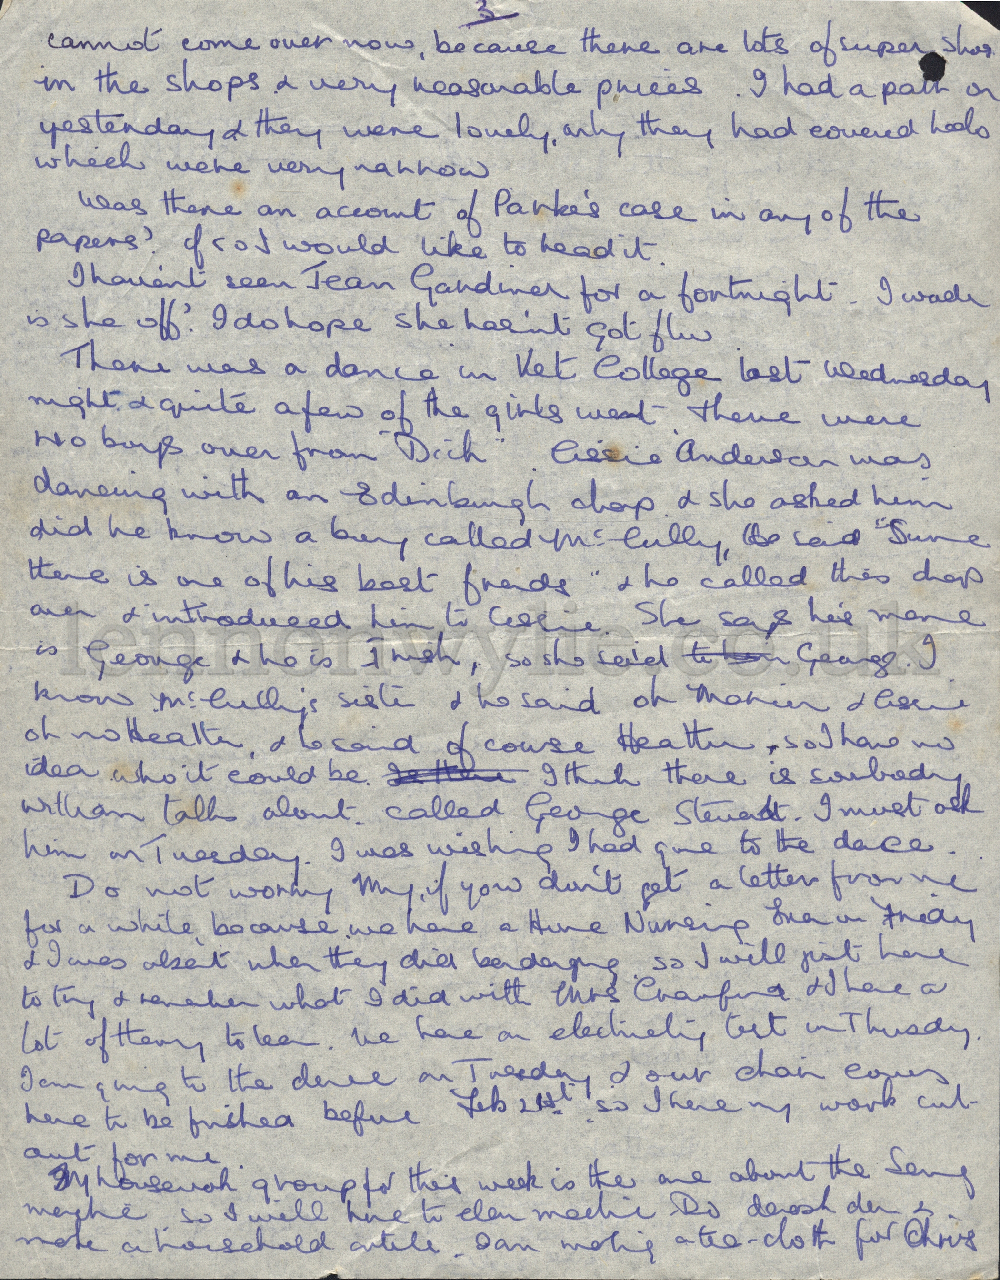 3
cannot come over now, because there are lots of super shoes
in the shops & very reasonable prices. I had a pair on
yesterday & they were lovely, only they had covered heels
which were very narrow
Was there an account of Parke's case in any of the
papers? If so I would like to read it.
I haven't seen Jean Gardiner for a fortnight - I wonder
is she off? I do hope she hasn't got flu
There was a dance in Vet College last Wednesday
night & quite a few of the girls went. There were
two boys over from "Dick". Cissie Anderson was
dancing with an Edinburgh chap & she asked him
did he know a boy called McCully, He said "Sure
there is one of his best friends" & he called this chap
over & introduced him to Cissie. She says his name
is George & he is Irish, so she said George. I
know McCully's sister & he said oh & Cissie
oh no Heather, & he said of course Heather, so I have no
idea who it could be. I think there is somebody
William talks about called George Stewart. I must ask
him on Tuesday. I was wishing I had gone to the dance.
Do not worry Mmy, if you don't get a letter from me
for a while, because we have a Home Nursing Exam on Friday
& I was absent when they did bandaging so I will just have
to try & remember what I did with Mrs Crawford & I have a
lot of theory to learn. We have an electricity test on Thursday.
I am going to the dance on Tuesday & our chair covers
have to be finished before Feb 21st so I have my work cut
out for me.
My housework group for this week is the one about the Sewing
machine so I will have to clean machine. Do &
make a household article. I am making a tea-cloth for Chris
lennonwylie.co.uk